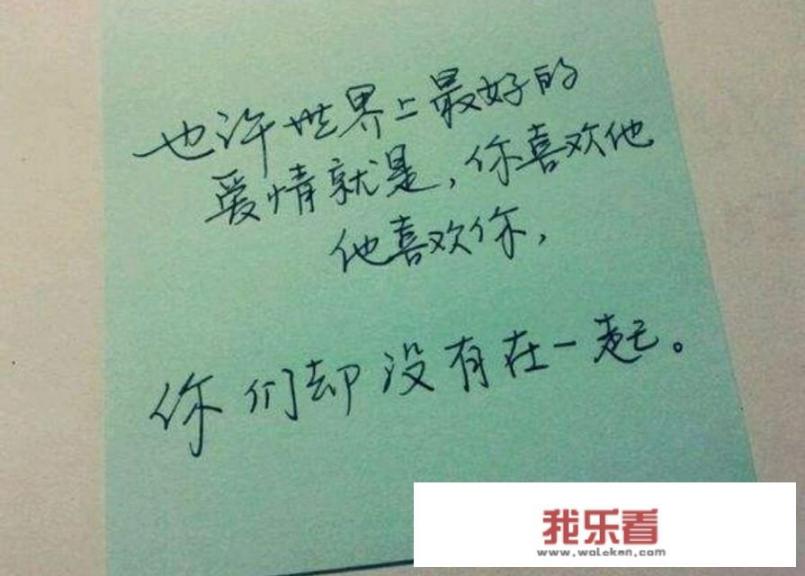 也许世界上最好的
爱情就是，你喜欢他
他喜欢你，
你们却没有在一起。
我乐看
www.woleken.com